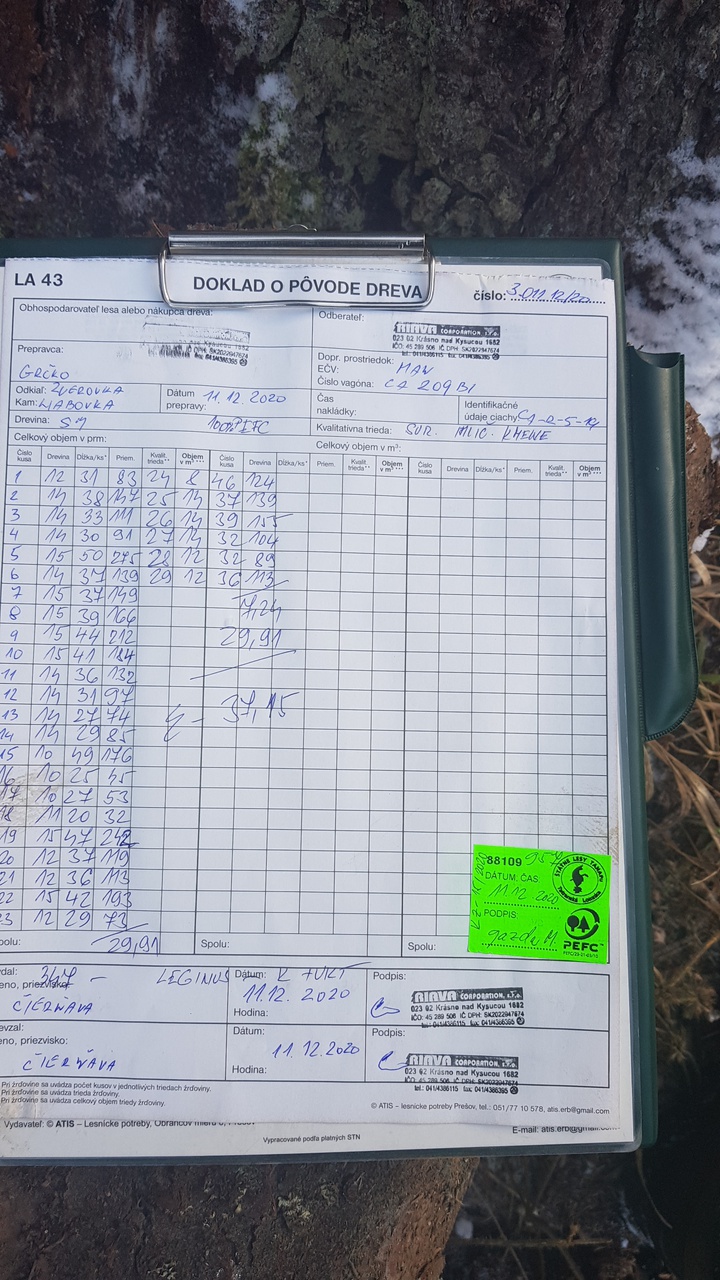 LA 43
DOKLAD O PÔVODE DREVA
číslo: 3.011.12/20
Obhospodarovateľ lesa alebo nákupca dreva:
Odberateľ:
RIAVA CORPORATION, s.r.o.
023 02 Krásno nad Kysucou 1682
IČO: 45 289 506 IČ DPH: SK2022947674
tel.: 041/4386115 fax: 041/4386395
Prepravca:
GRČKO
Dopr. prostriedok:
EČV: MAN
Číslo vagóna: CA 209 BI
Odkiaľ: ZVEROVKA
Kam: HABOVKA
Dátum prepravy: 11.12.2020
Čas nakládky:
Identifikačné údaje ciachy: C1-2-5-12
Drevina: SM 100% PEFC
Kvalitatívna trieda: SUR.
Celkový objem v prm:
Celkový objem v m³:
Číslo kusa Drevina Dĺžka/ks* Priem. Kvalit. trieda** Objem v m³ *** Číslo kusa Drevina Dĺžka/ks* Priem. Kvalit. trieda** Objem v m³ *** Číslo kusa Drevina Dĺžka/ks* Priem. Kvalit. trieda** Objem v m³ ***
1 12 31 83 24 8 46 124
2 14 38 147 25 14 37 139
3 14 33 111 26 14 39 155
4 14 30 91 27 14 32 104
5 15 50 275 28 12 32 89
6 14 37 139 29 12 36 113
7 15 37 149
7,24
8 15 39 166
9 15 44 212 29,91
10 15 41 184
11 14 36 132
12 14 31 97
13 14 27 74 37,15
14 14 29 85
15 10 49 176
16 10 25 45
17 10 27 53
18 11 20 32
19 15 47 242
20 12 37 119
21 12 36 113
22 15 42 193
23 12 29 73
polu: 29,91 Spolu: Spolu:
88109
DÁTUM: ČAS
11.12.2020
PODPIS:
gazda M.
ŠTÁTNE LESY TANAPu
Tatranská Lomnica
PEFC™
dal: LEGINUS
eno, priezvisko:
ČIERŇAVA
Dátum:
11.12.2020
Hodina:
Podpis:
RIAVA CORPORATION, s.r.o.
023 02 Krásno nad Kysucou 1682
IČO: 45 289 506 IČ DPH: SK2022947674
tel.: 041/4386115 fax: 041/4386395
evzal:
eno, priezvisko:
ČIERŇAVA
Dátum:
11.12.2020
Hodina:
Podpis:
RIAVA CORPORATION, s.r.o.
023 02 Krásno nad Kysucou 1682
IČO: 45 289 506 IČ DPH: SK2022947674
tel.: 041/4386115 fax: 041/4386395
Pri žrdovine sa uvádza počet kusov v jednotlivých triedach žrdoviny.
Pri žrdovine sa uvádza trieda žrdoviny.
Pri žrdovine sa uvádza celkový objem triedy žrdoviny.
© ATIS – lesnícke potreby Prešov, tel.: 051/77 10 578, atis.erb@gmail.com
Vydavateľ: © ATIS – Lesnícke potreby, Obrancov mieru
E-mail: atis.erb@gmail.com
Vypracované podľa platných STN